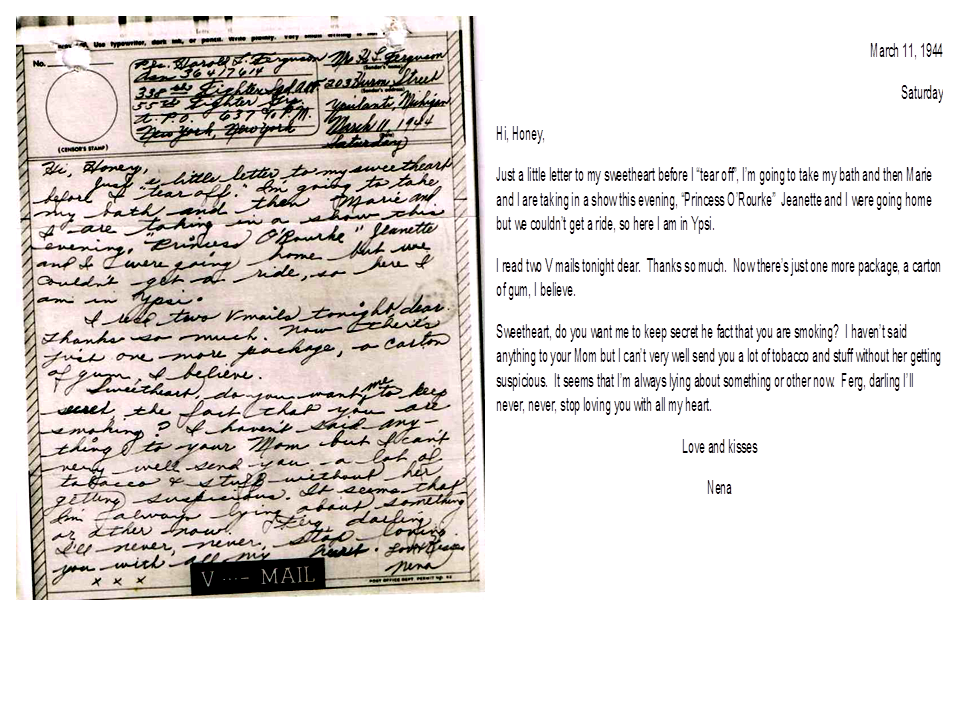 Use typewriter, dark ink, or pencil. Write plainly. Very small writing is not
No.
(CENSOR'S STAMP)
Pfc. Harold L. Ferguson
Asn 36417614
338th Fighter Sqd. AAF
55th Fighter Grp.
A.P.O. 637 % P.M.
New York, New York
Mrs. H. L. Ferguson
(Sender's name)
203 Huron Street
(Sender's address)
Ypsilanti, Michigan
March 11, 1944
(Saturday)
Hi, Honey,
Just a little letter to my sweetheart
before I "tear off." I'm going to take
my bath and then Marie and
I are taking in a show this
evening, "Princess O'Rourke" Jeanette
and I were going home but we
couldn't get a ride, so here I
am in Ypsi.
I read two V mails tonight dear.
Thanks so much. Now there's
just one more package, a carton
of gum, I believe.
Sweetheart, do you want me to keep
secret the fact that you are
smoking? I haven't said any-
thing to your Mom but I can't
very well send you a lot of
tobacco & stuff without her
getting suspicious. It seems that
I'm always lying about something
or other now. Ferg, darling
I'll never, never, stop loving
you with all my heart. Love & Kisses
x x x Nena
V ···– MAIL
POST OFFICE DEPT. PERMIT NO.
March 11, 1944
Saturday
Hi, Honey,
Just a little letter to my sweetheart before I “tear off”, I’m going to take my bath and then Marie
and I are taking in a show this evening, “Princess O’Rourke” Jeanette and I were going home
but we couldn’t get a ride, so here I am in Ypsi.
I read two V mails tonight dear. Thanks so much. Now there’s just one more package, a carton
of gum, I believe.
Sweetheart, do you want me to keep secret he fact that you are smoking? I haven’t said
anything to your Mom but I can’t very well send you a lot of tobacco and stuff without her getting
suspicious. It seems that I’m always lying about something or other now. Ferg, darling I’ll
never, never, stop loving you with all my heart.
Love and kisses
Nena